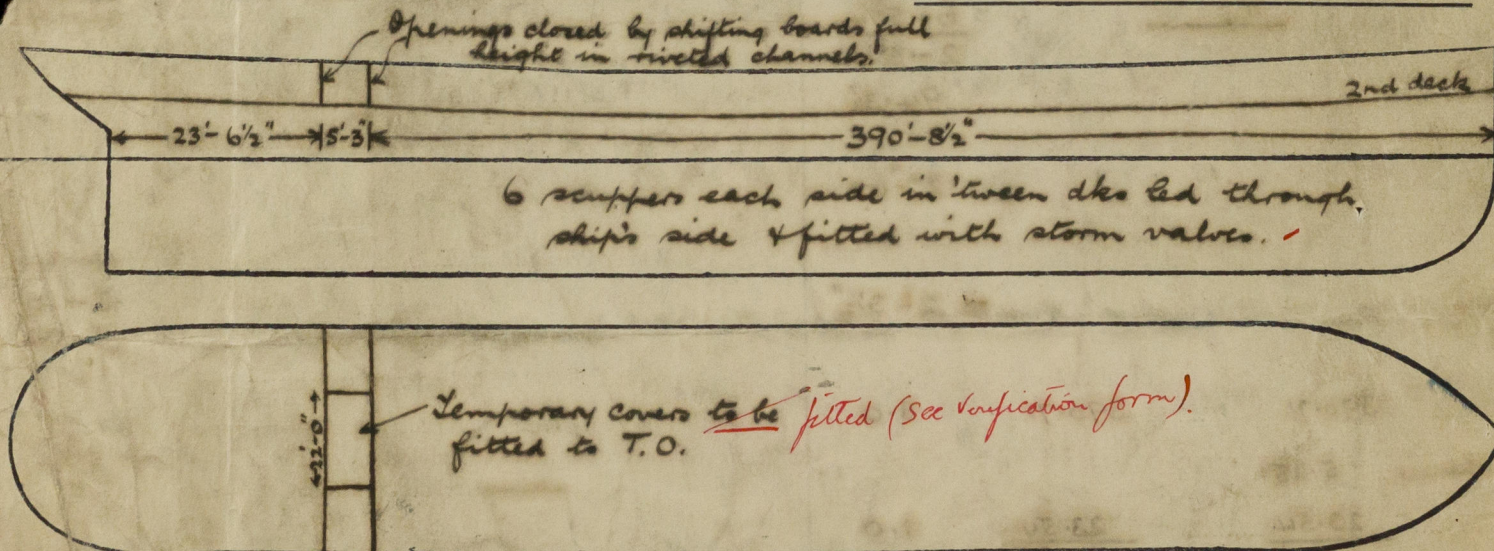 Openings closed by shifting boards full
height in riveted channels.
2nd deck
23'-6½" 5'-3" 390'-8½"
6 scuppers each side in 'tween dks led through
ship's side & fitted with storm valves.
Temporary covers to be fitted (See Verification form).
fitted to T.O.
22'-0"